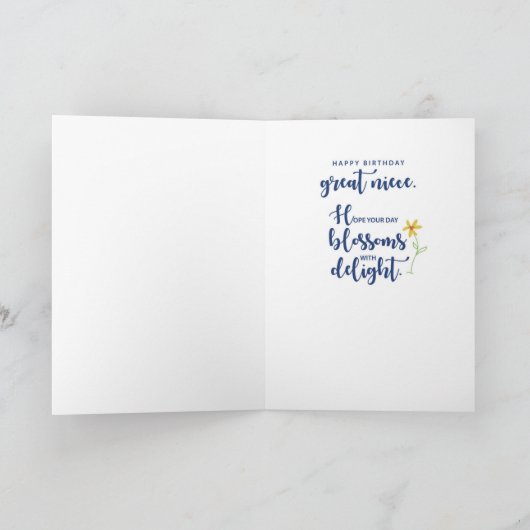 HAPPY BIRTHDAY
great niece.
HOPE YOUR DAY
blossoms
WITH
delight.